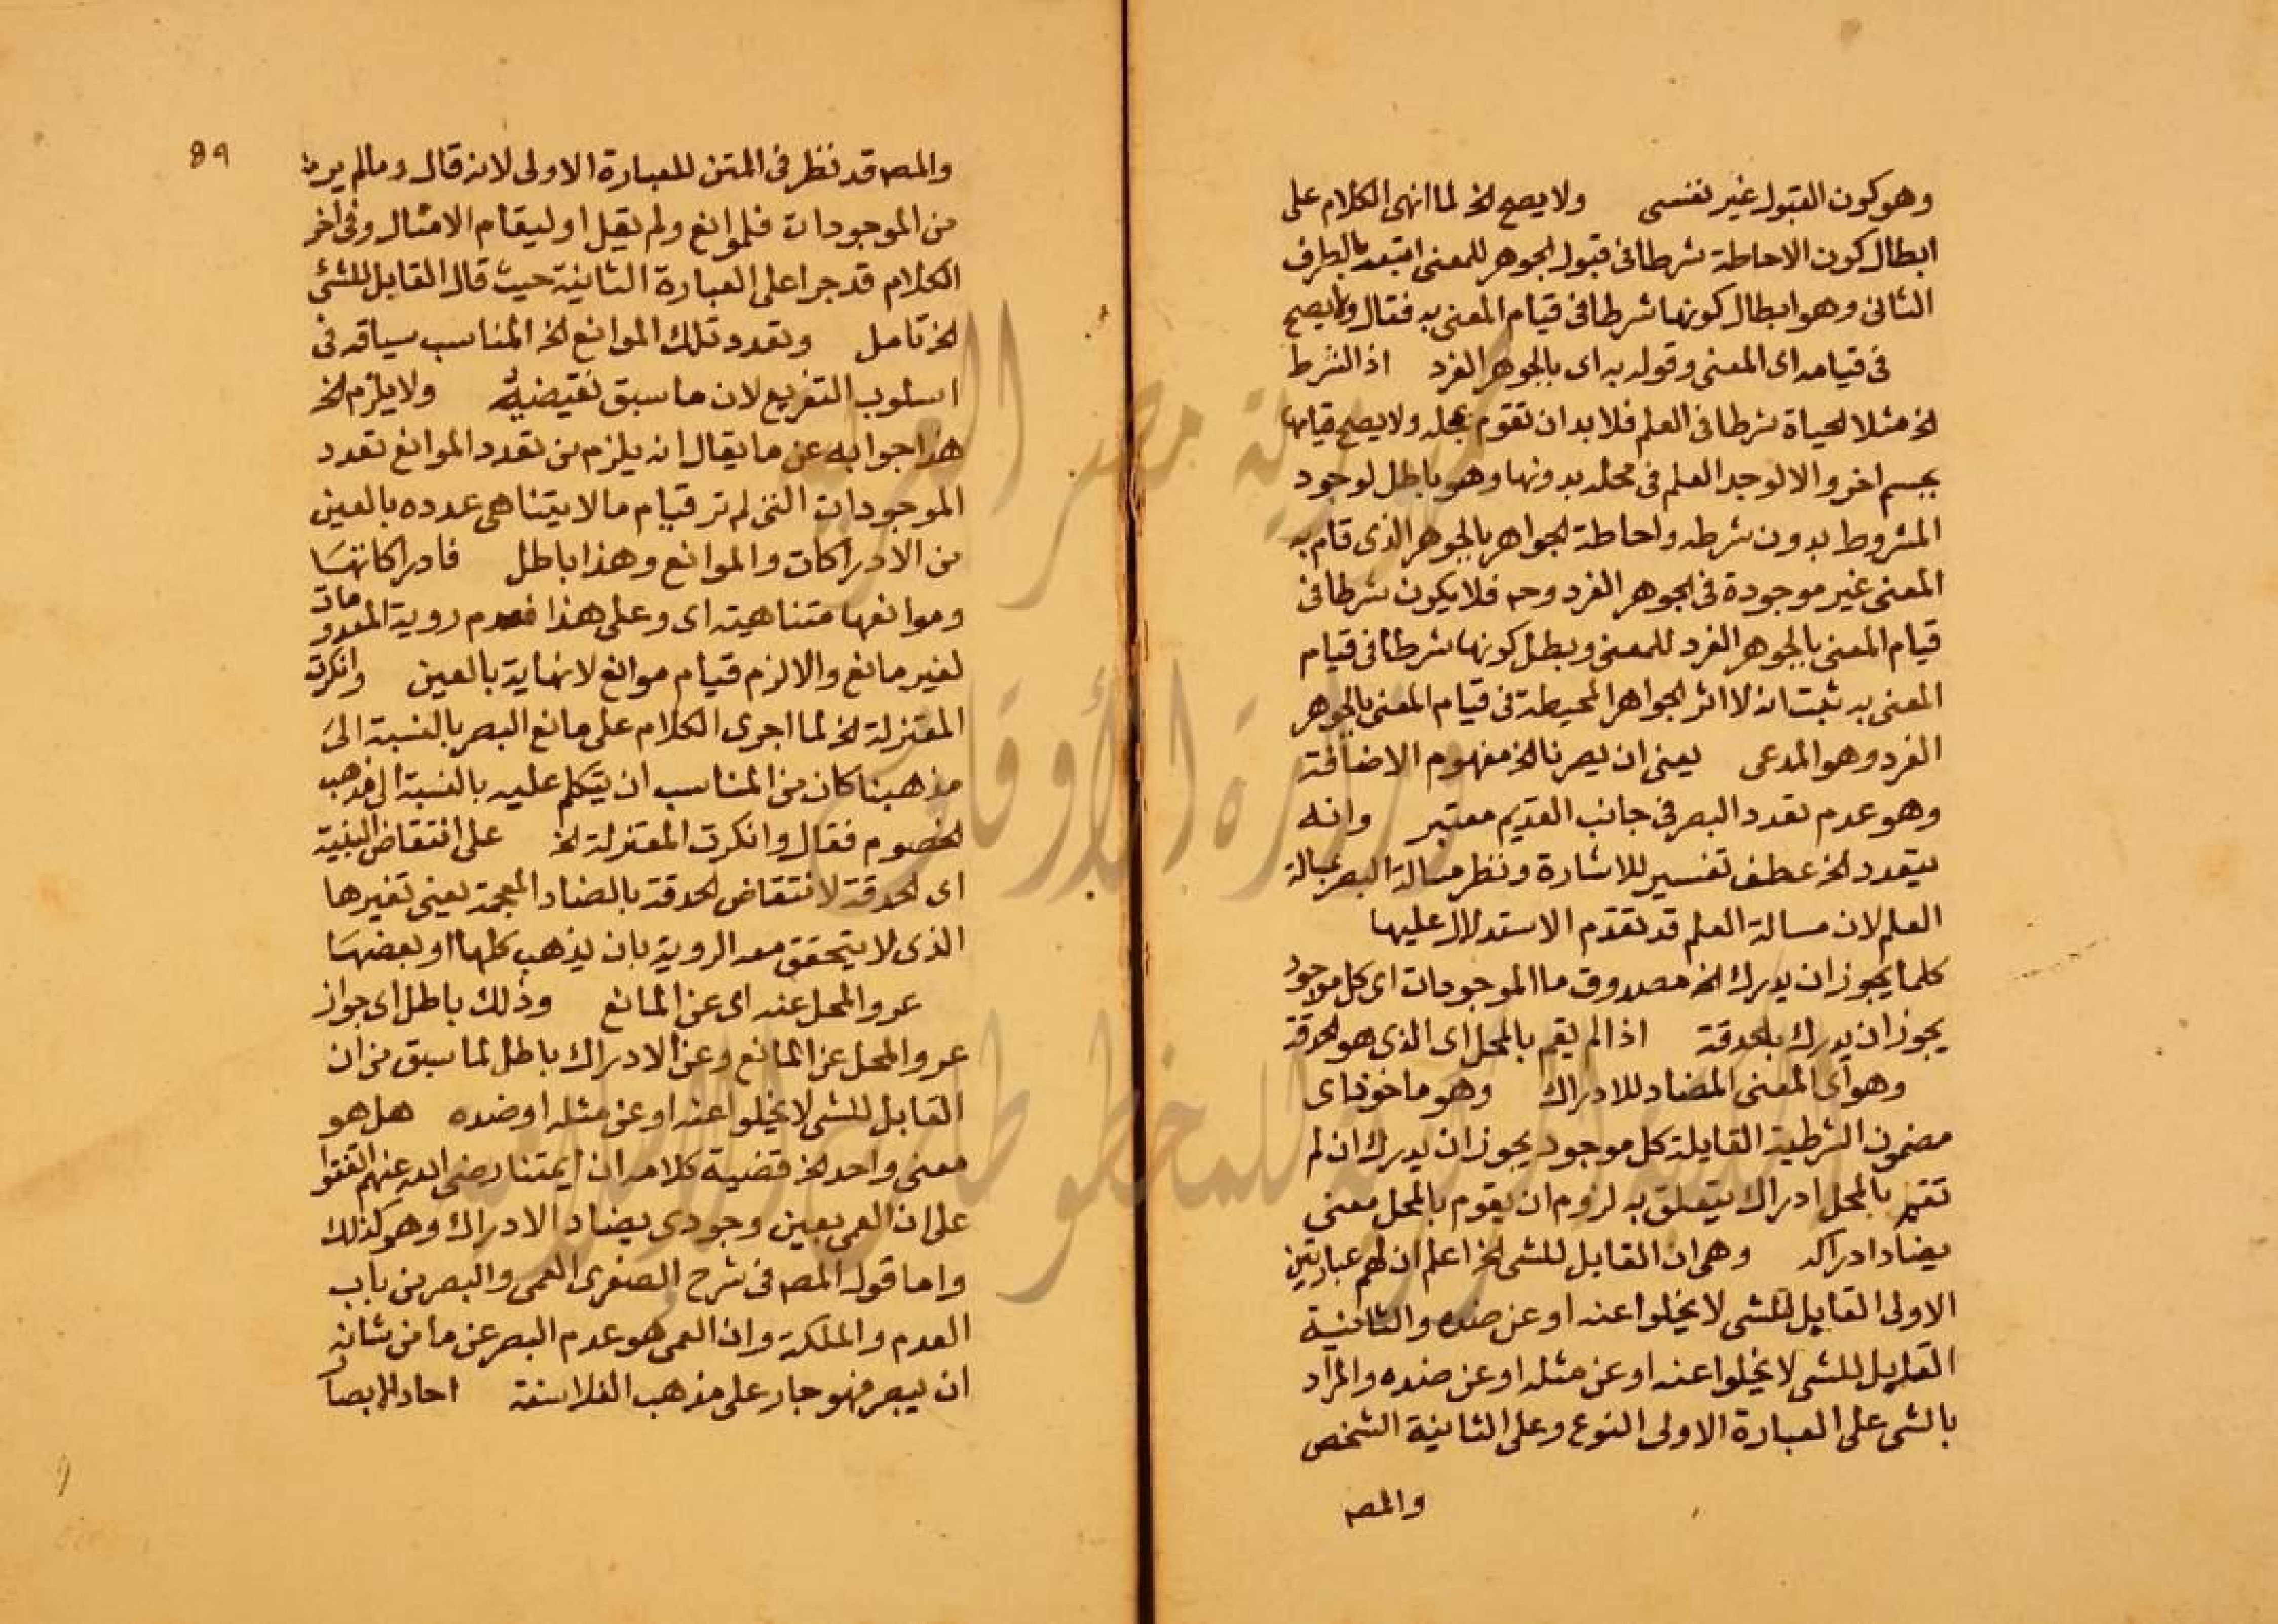 وهو كون القبول غير نفسى ولا يصح الخ لما انهى الكلام على
ابطال كون الاحاطة شرطا فى قبول الجوهر للمعنى اتبعه بالطرف
الثانى وهو ابطال كونها شرطا فى قيام المعنى به فقال ولا يصح
فى قيامه اى المعنى وقوله به اى بالجوهر الفرد اذ الشرط
الخ مثلا الحياة شرطا فى العلم فلا بد ان تقوم بمحله ولا يصح قيامها
بجسم اخر والا لوجد العلم فى محله بدونها وهو باطل لوجود
المشروط بدون شرطه واحاطة الجواهر بالجوهر الذى قام به
المعنى غير موجودة فى الجوهر الفرد وحه فلا يكون شرطا فى
قيام المعنى بالجوهر الفرد للمعنى وبطل كونها شرطا فى قيام
المعنى به ثبت انه لا اثر الجواهر المحيطة فى قيام المعنى بالجوهر
الفرد وهو المدعى يعنى ان بصرنا الخ مفهوم الاضافة
وهو عدم تعدد البصر فى جانب القديم معتبر وانه
يتعدد الخ عطف تفسير للاشارة ونظر مسالة البصر بمسالة
العلم لان مسالة العلم قد تقدم الاستدلال عليها
كلما يجوز ان يدرك الخ مصدوق ما الموجودات اى كل موجود
يجوز ان يدرك بالحدقة اذا لم يقم بالمحل اى الذى هو الحدقة
وهو اى المعنى المضاد للادراك وهو ماخوذ اى
مضمون الشرطية القايلة كل موجود يجوز ان يدرك ان لم
تقم بالمحل ادراك يتعلق به لزوم ان يقوم بالمحل معنى
يضاد ادراكه وهى ان القابل للشى الخ اعلم ان لهم عبارتين
الاولى القابل للشى لا يخلوا عنه او عن ضده والثانية
القابل للشى لا يخلوا عنه او عن مثله او عن ضده والمراد
بالشى على العبارة الاولى النوع وعلى الثانية الشخص
والمصـ
89
والمصـ قد نظر فى المتن للعبارة الاولى لانه قال وما لم ير
من الموجودات فلموانع ولم يقل او ليقام الامثال وفى اخر
الكلام قد جرا على العبارة الثانية حيث قال القابل للشئ
الخ تامل وتعدد تلك الموانع الخ المناسب سياقه فى
اسلوب التفريع لان ما سبق نقيضيه ولا يلزم الخ
هذا جوابه عن ما يقال انه يلزم من تعدد الموانع تعدد
الموجودات التى لم تر قيام ما لا يتناهى عدده بالعين
من الادراكات والموانع وهذا باطل فادراكاتها
وموانعها متناهية اى وعلى هذا فعدم روية المعدومات
لغير مانع والا لزم قيام موانع لا نهاية بالعين وانكرت
المعتزلة الخ لما اجرى الكلام على مانع البصر بالنسبة الى
مذهبنا كان من المناسب ان يتكلم عليه بالنسبة الى مذهب
الخصوم فقال وانكرت المعتزلة الخ على انتقاض البنية
اى الحدقة لانتقاض الحدقة بالضاد المعجمة يعنى تغيرها
الذى لا يتحقق معه الروية بان يذهب كلها او بعضها
عرو المحل عنه اى عن المانع وذلك باطل اى جواز
عرو المحل عن المانع وعن الادراك باطل لما سبق من ان
القابل للشى لا يخلوا عنه او عن مثله او ضده هل هو
معنى واحد الخ قضية كلامه ان ايمتنا رضى الله عنهم اتفقوا
على ان العمى بعين وجودى يضاد الادراك وهو كذلك
واما قول المصـ فى شرح الصغرى العمى والبصر من باب
العدم والملكة وان العمى هو عدم البصر عن ما من شانه
ان يبصر فهو جار على مذهب الفلاسفة احاد الابصا
جمهورية مصر العربية
وزارة الأوقاف
المكتبة المركزية للمخطوطات الإسلامية